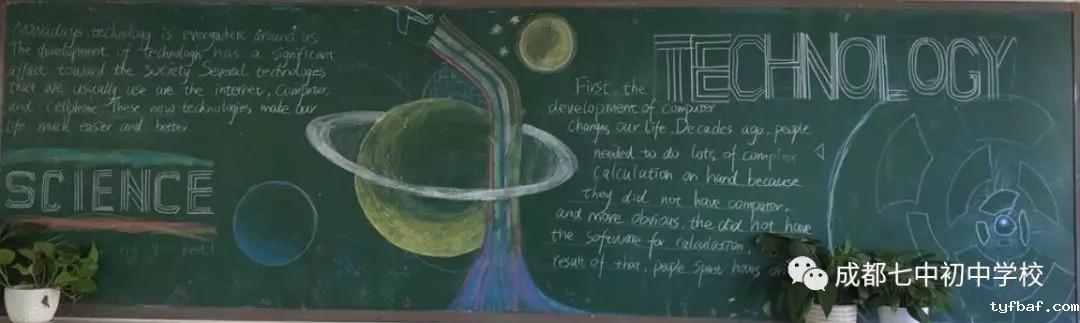 Nowadays technology is everywhere around us.
The development of technologh has a significant
affect toward the society Several technologies
that we usually use are the internet, Computer,
and cellphone These new technologies make our
life much easier and better
SCIENCE
TECHNOLOGY
First, the
development of computer
changes our life. Decades ago, people
needed to do lots of complex
calculation on hand because
they did not have computer,
and more obvious, the did not have
the software for calculation
result of that, people spent hours
成都七中初中学校
tyfbaf.com